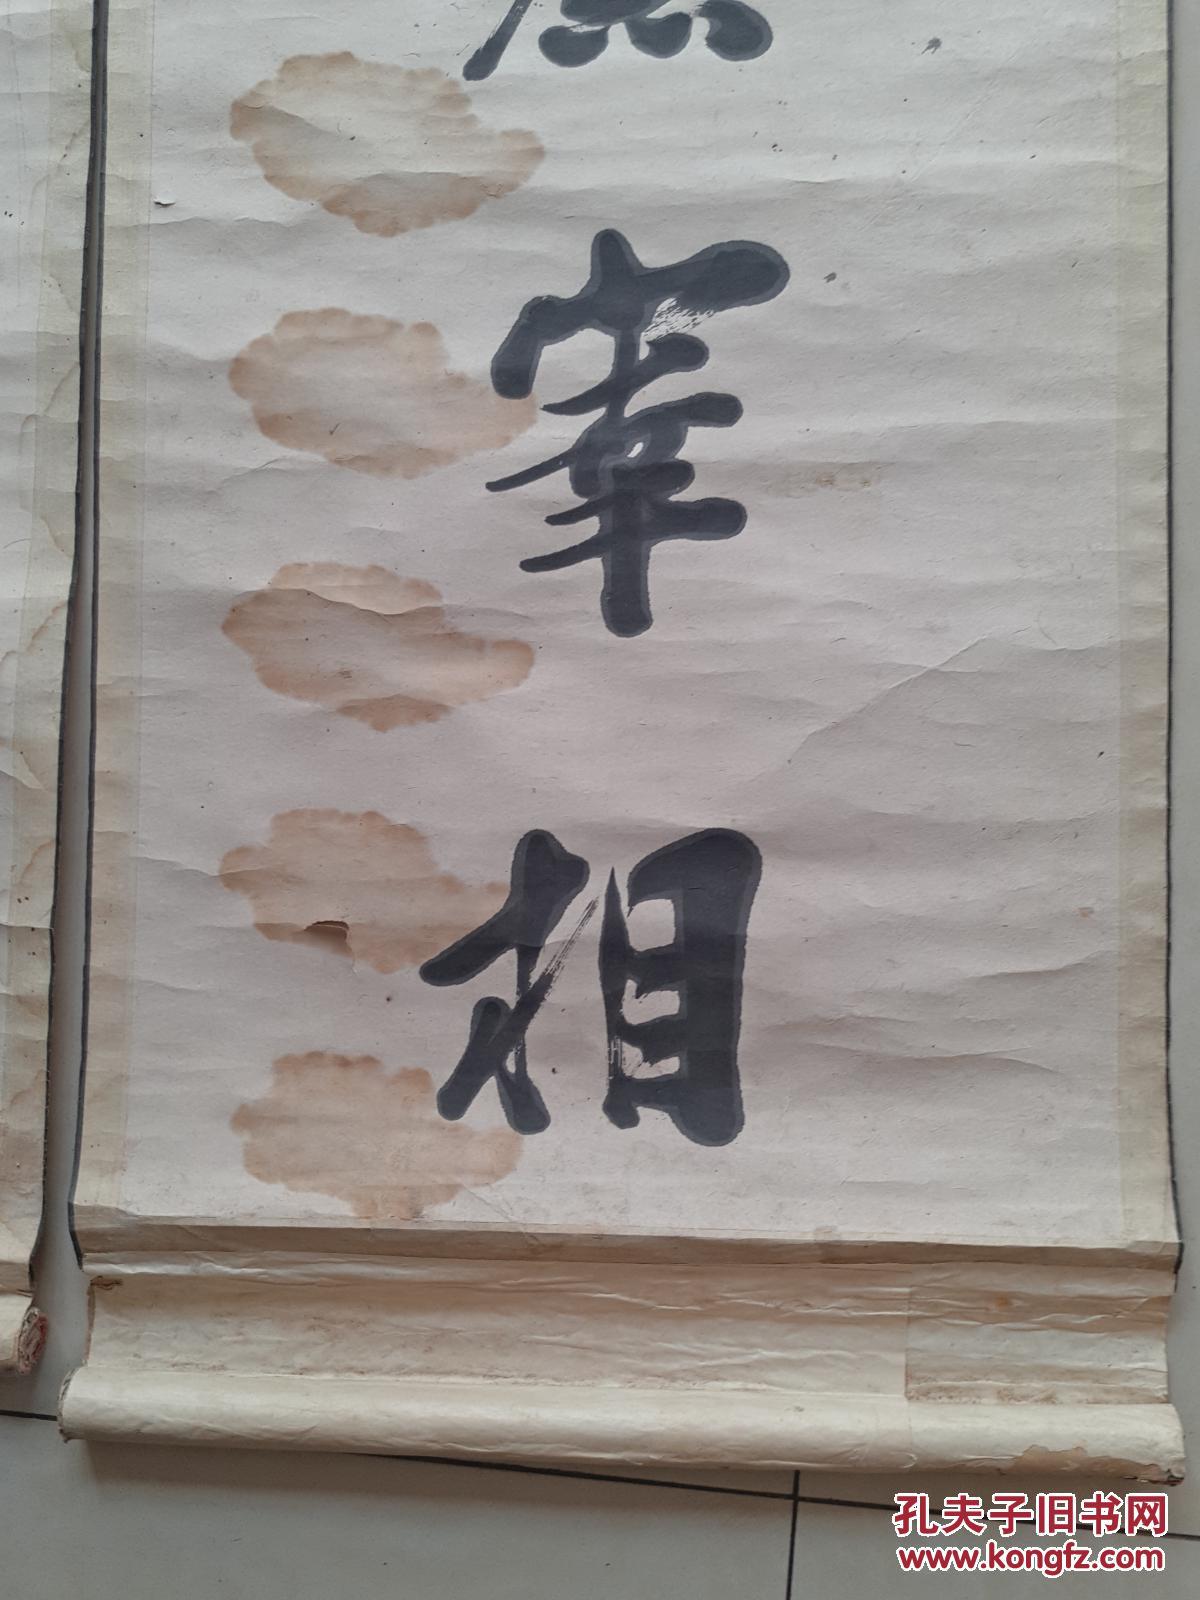 宰
相
孔夫子旧书网
www.kongfz.com